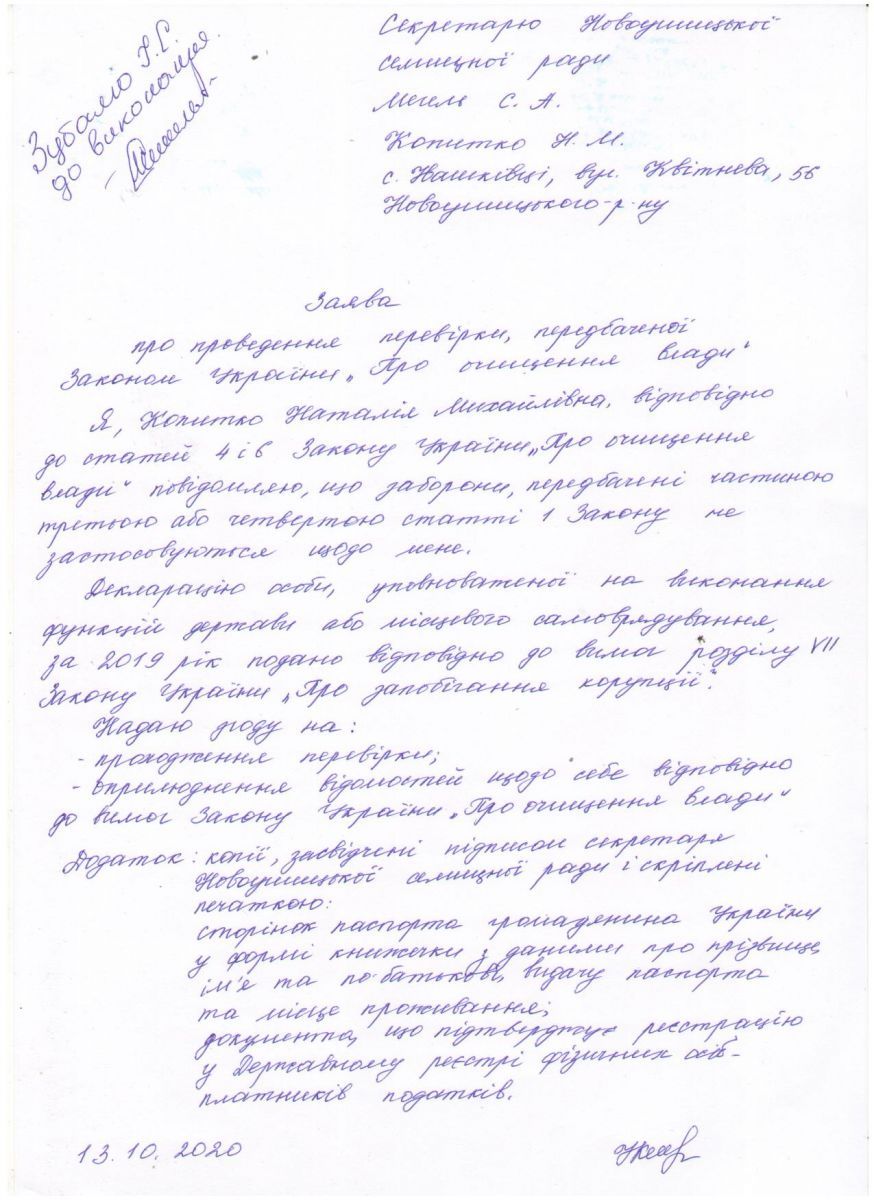 Зубалію Т.С.
до виконання.
Секретарю Новоушицької
селищної ради
Мегель С. А.
Копитко Н. М.
с. Пашківці, вул. Квітнева, 56
Новоушицького р-ну
Заява
про проведення перевірки, передбаченої
Законом України „Про очищення влади“
Я, Копитко Наталія Михайлівна, відповідно
до статей 4 і 6 Закону України „Про очищення
влади“ повідомляю, що заборони, передбачені частиною
третьою або четвертою статті 1 Закону не
застосовуються щодо мене.
Декларацію особи, уповноваженої на виконання
функцій держави або місцевого самоврядування,
за 2019 рік подано відповідно до вимог розділу VII
Закону України „Про запобігання корупції“.
Надаю згоду на:
- проходження перевірки;
- оприлюднення відомостей щодо себе відповідно
до вимог Закону України „Про очищення влади“
Додаток: копії, засвідчені підписом секретаря
Новоушицької селищної ради і скріплені
печаткою:
сторінок паспорта громадянина України
у формі книжечки з даними про прізвище,
ім'я та по-батькові, видачу паспорта
та місце проживання;
документа, що підтверджує реєстрацію
у Державному реєстрі фізичних осіб-
платників податків.
13.10.2020